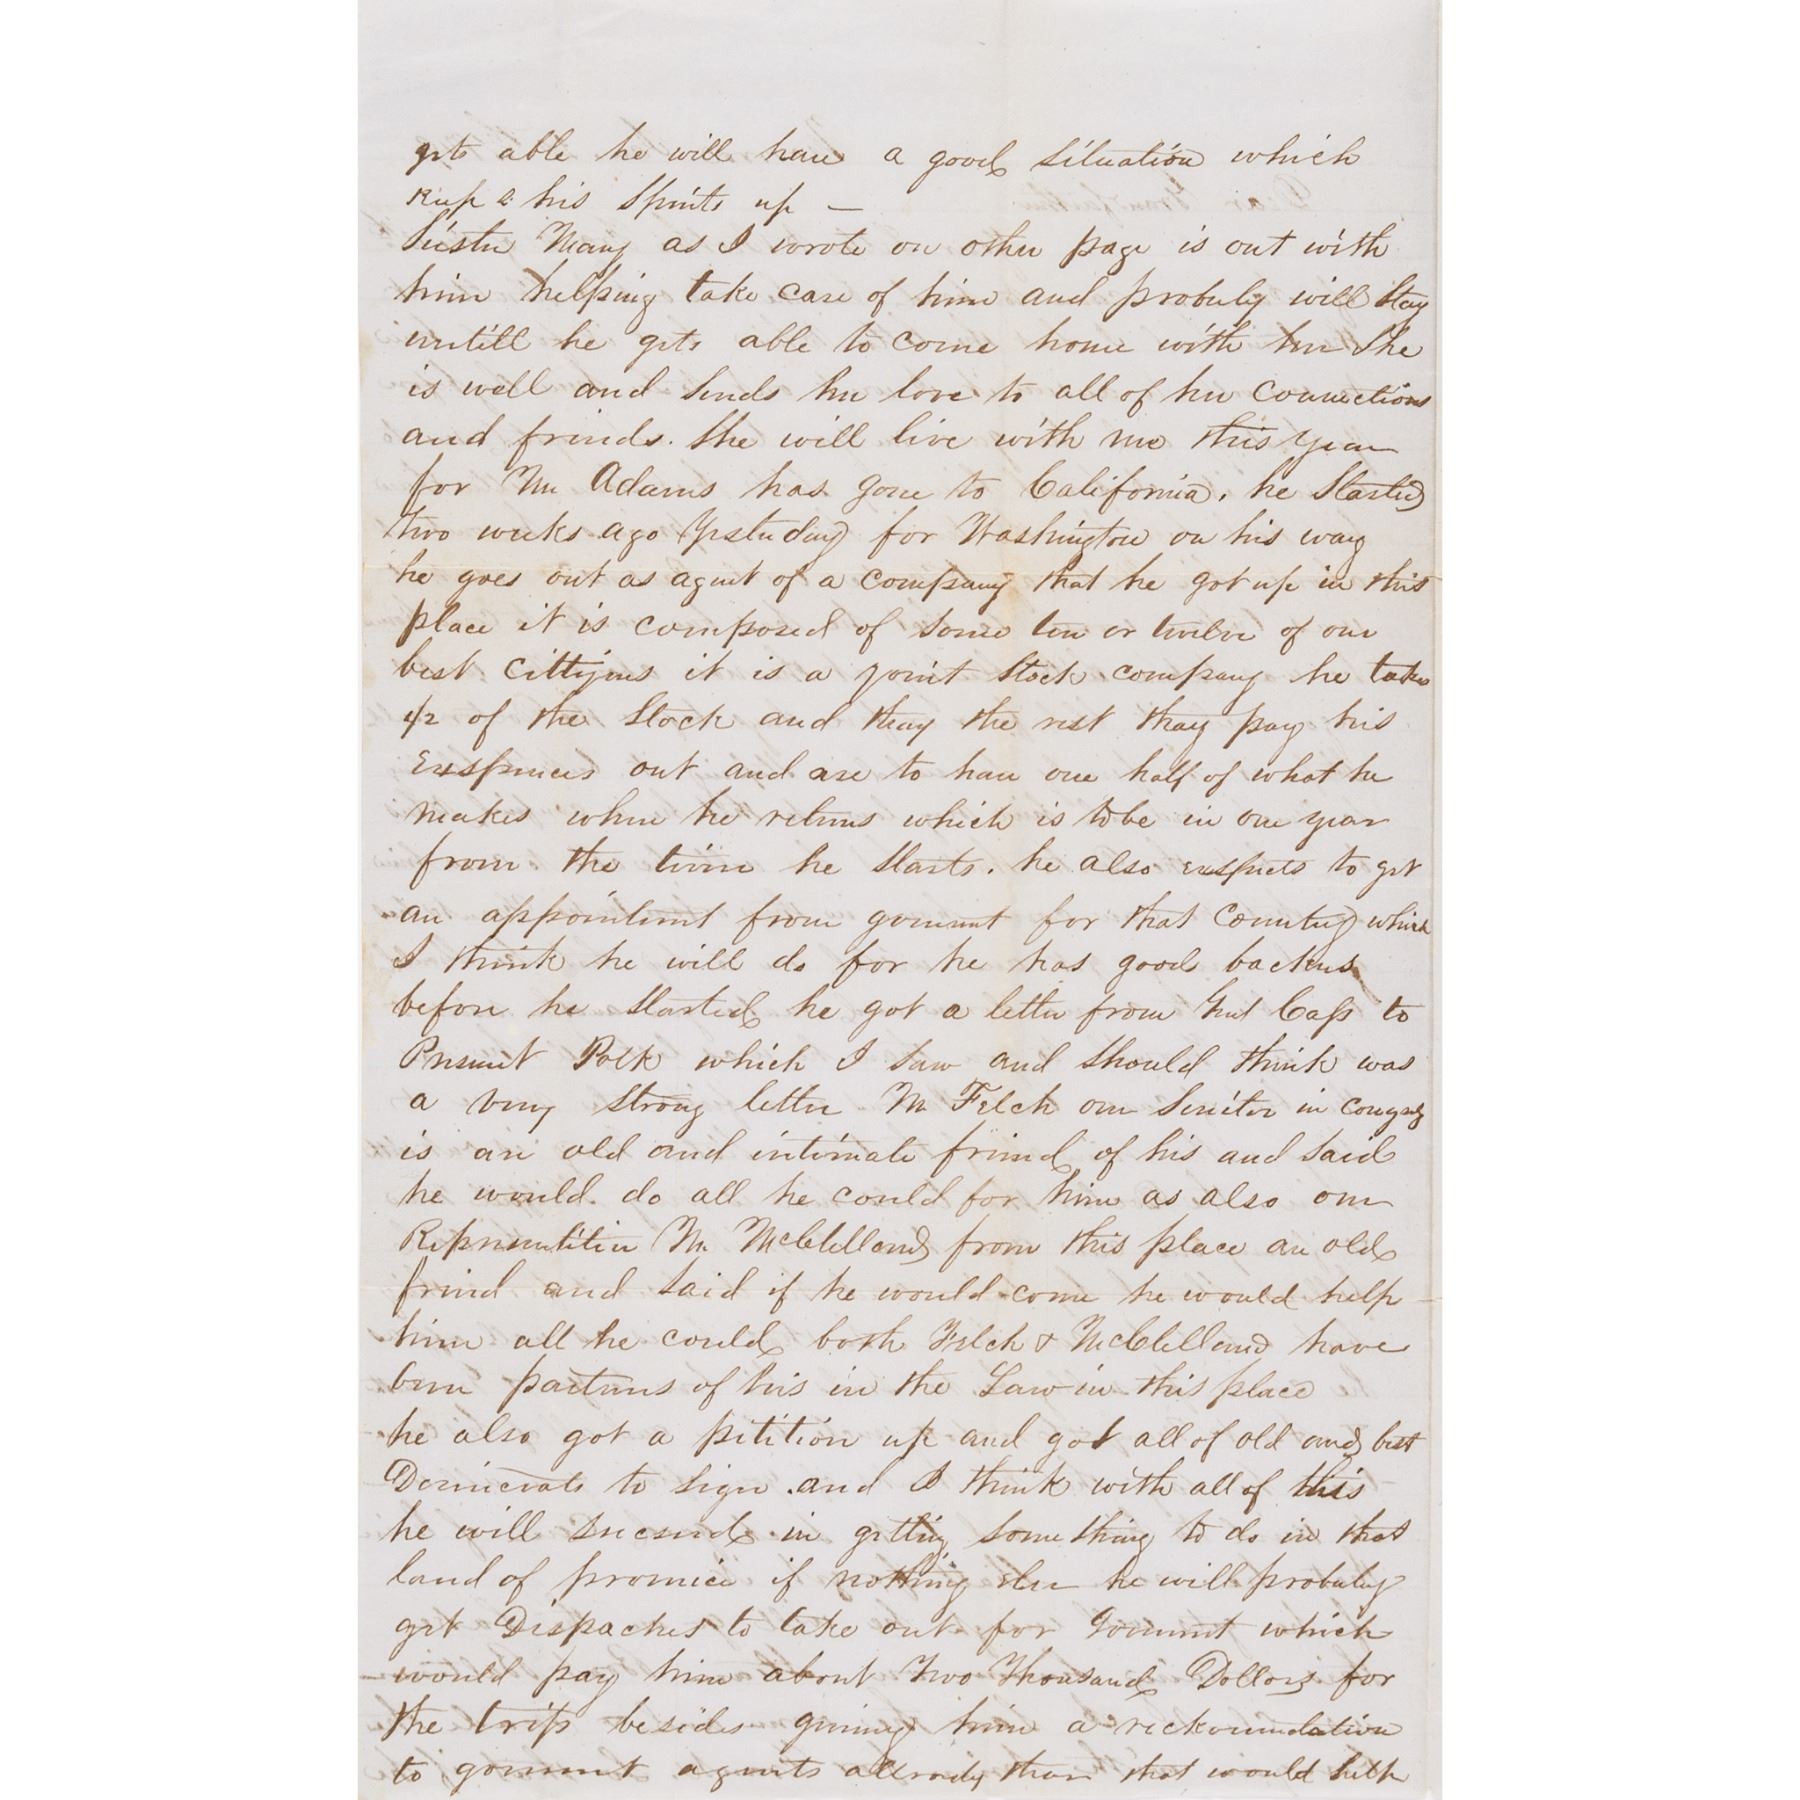 gets able he will have a good situation which
keeps his spirits up —
Sister Mary as I wrote on other page is out with
him helping take care of him and probuly will stay
untill he gets able to come home with her She
is well and sends her love to all of her Connections
and frinds. She will live with me this year
for Mr Adams has gone to California. he Started
two weeks ago Yesterday for Washington on his way
he goes out as agent of a company that he got up in this
place it is composed of some ten or twelve of our
best Cittizens it is a joint Stock company he takes
1/2 of the Stock and thay the rest thay pay his
Exspences out and are to have one half of what he
makes when he returns which is to be in one year
from the time he starts. he also exspects to get
an appointment from goverment for that Country which
I think he will do for he has good backers
before he started he got a letter from Genl Cass to
Presient Polk which I saw and should think was
a very strong letter Mr Felch our Senitor in congress
is an old and intimate friend of his and said
he would do all he could for him as also our
Represenntitive Mr McClelland from this place an old
frind and said if he would come he would help
him all he could both Felch & McClelland have
been partners of his in the Law in this place
he also got a pitition up and got all of old and best
Demicrats to sign and I think with all of this
he will sucseed in getting something to do in that
land of promice if nothing else he will probuly
get Dispaches to take out for Goverment which
would pay him about Two Thousand Dollars for
the trip besides giving him a reckoumdation
to goverment agents allready thare that would help